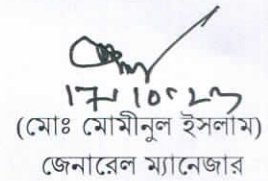 17-10-23
(মোঃ মোমীনুল ইসলাম)
জেনারেল ম্যানেজার